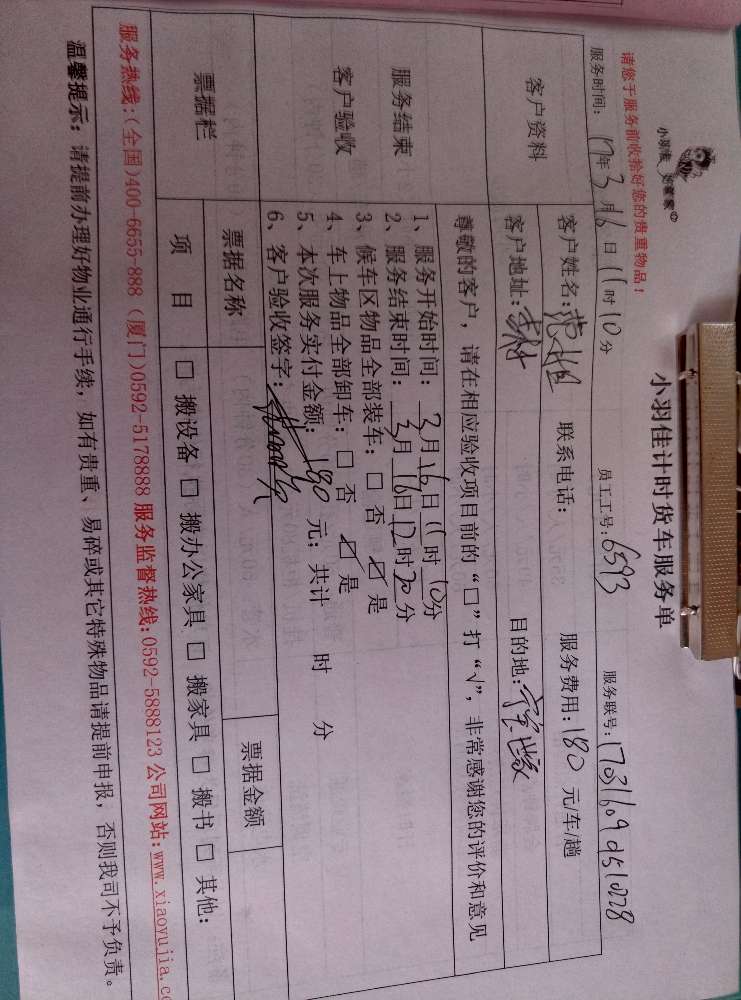 小羽佳计时货车服务单
请您于服务前收拾好您的贵重物品！
服务时间：17年3月16日11时10分 员工工号：6593 服务联号：17031609510228
客户资料
客户姓名： 联系电话： 服务费用：180元/车/趟
客户地址： 目的地：
尊敬的客户，请在相应验收项目前的“□”打“√”，非常感谢您的评价和意见
服务结束
客户验收
1、服务开始时间：3月16日11时10分
2、服务结束时间：3月16日12时20分
3、候车区物品全部装车：□ 否 ☑ 是
4、车上物品全部卸车：□ 否 ☑ 是
5、本次服务实付金额：180元；共计 时 分
6、客户验收签字：
票据栏
票据名称 票据金额
项 目 □ 搬设备 □ 搬办公家具 □ 搬家具 □ 搬书 □ 其他：
服务热线：（全国）400-6655-888（厦门）0592-5178888 服务监督热线：0592-5888123 公司网站：www.xiaoyujia.co
温馨提示：请提前办理好物业通行手续，如有贵重、易碎或其它特殊物品请提前申报，否则我司不予负责。